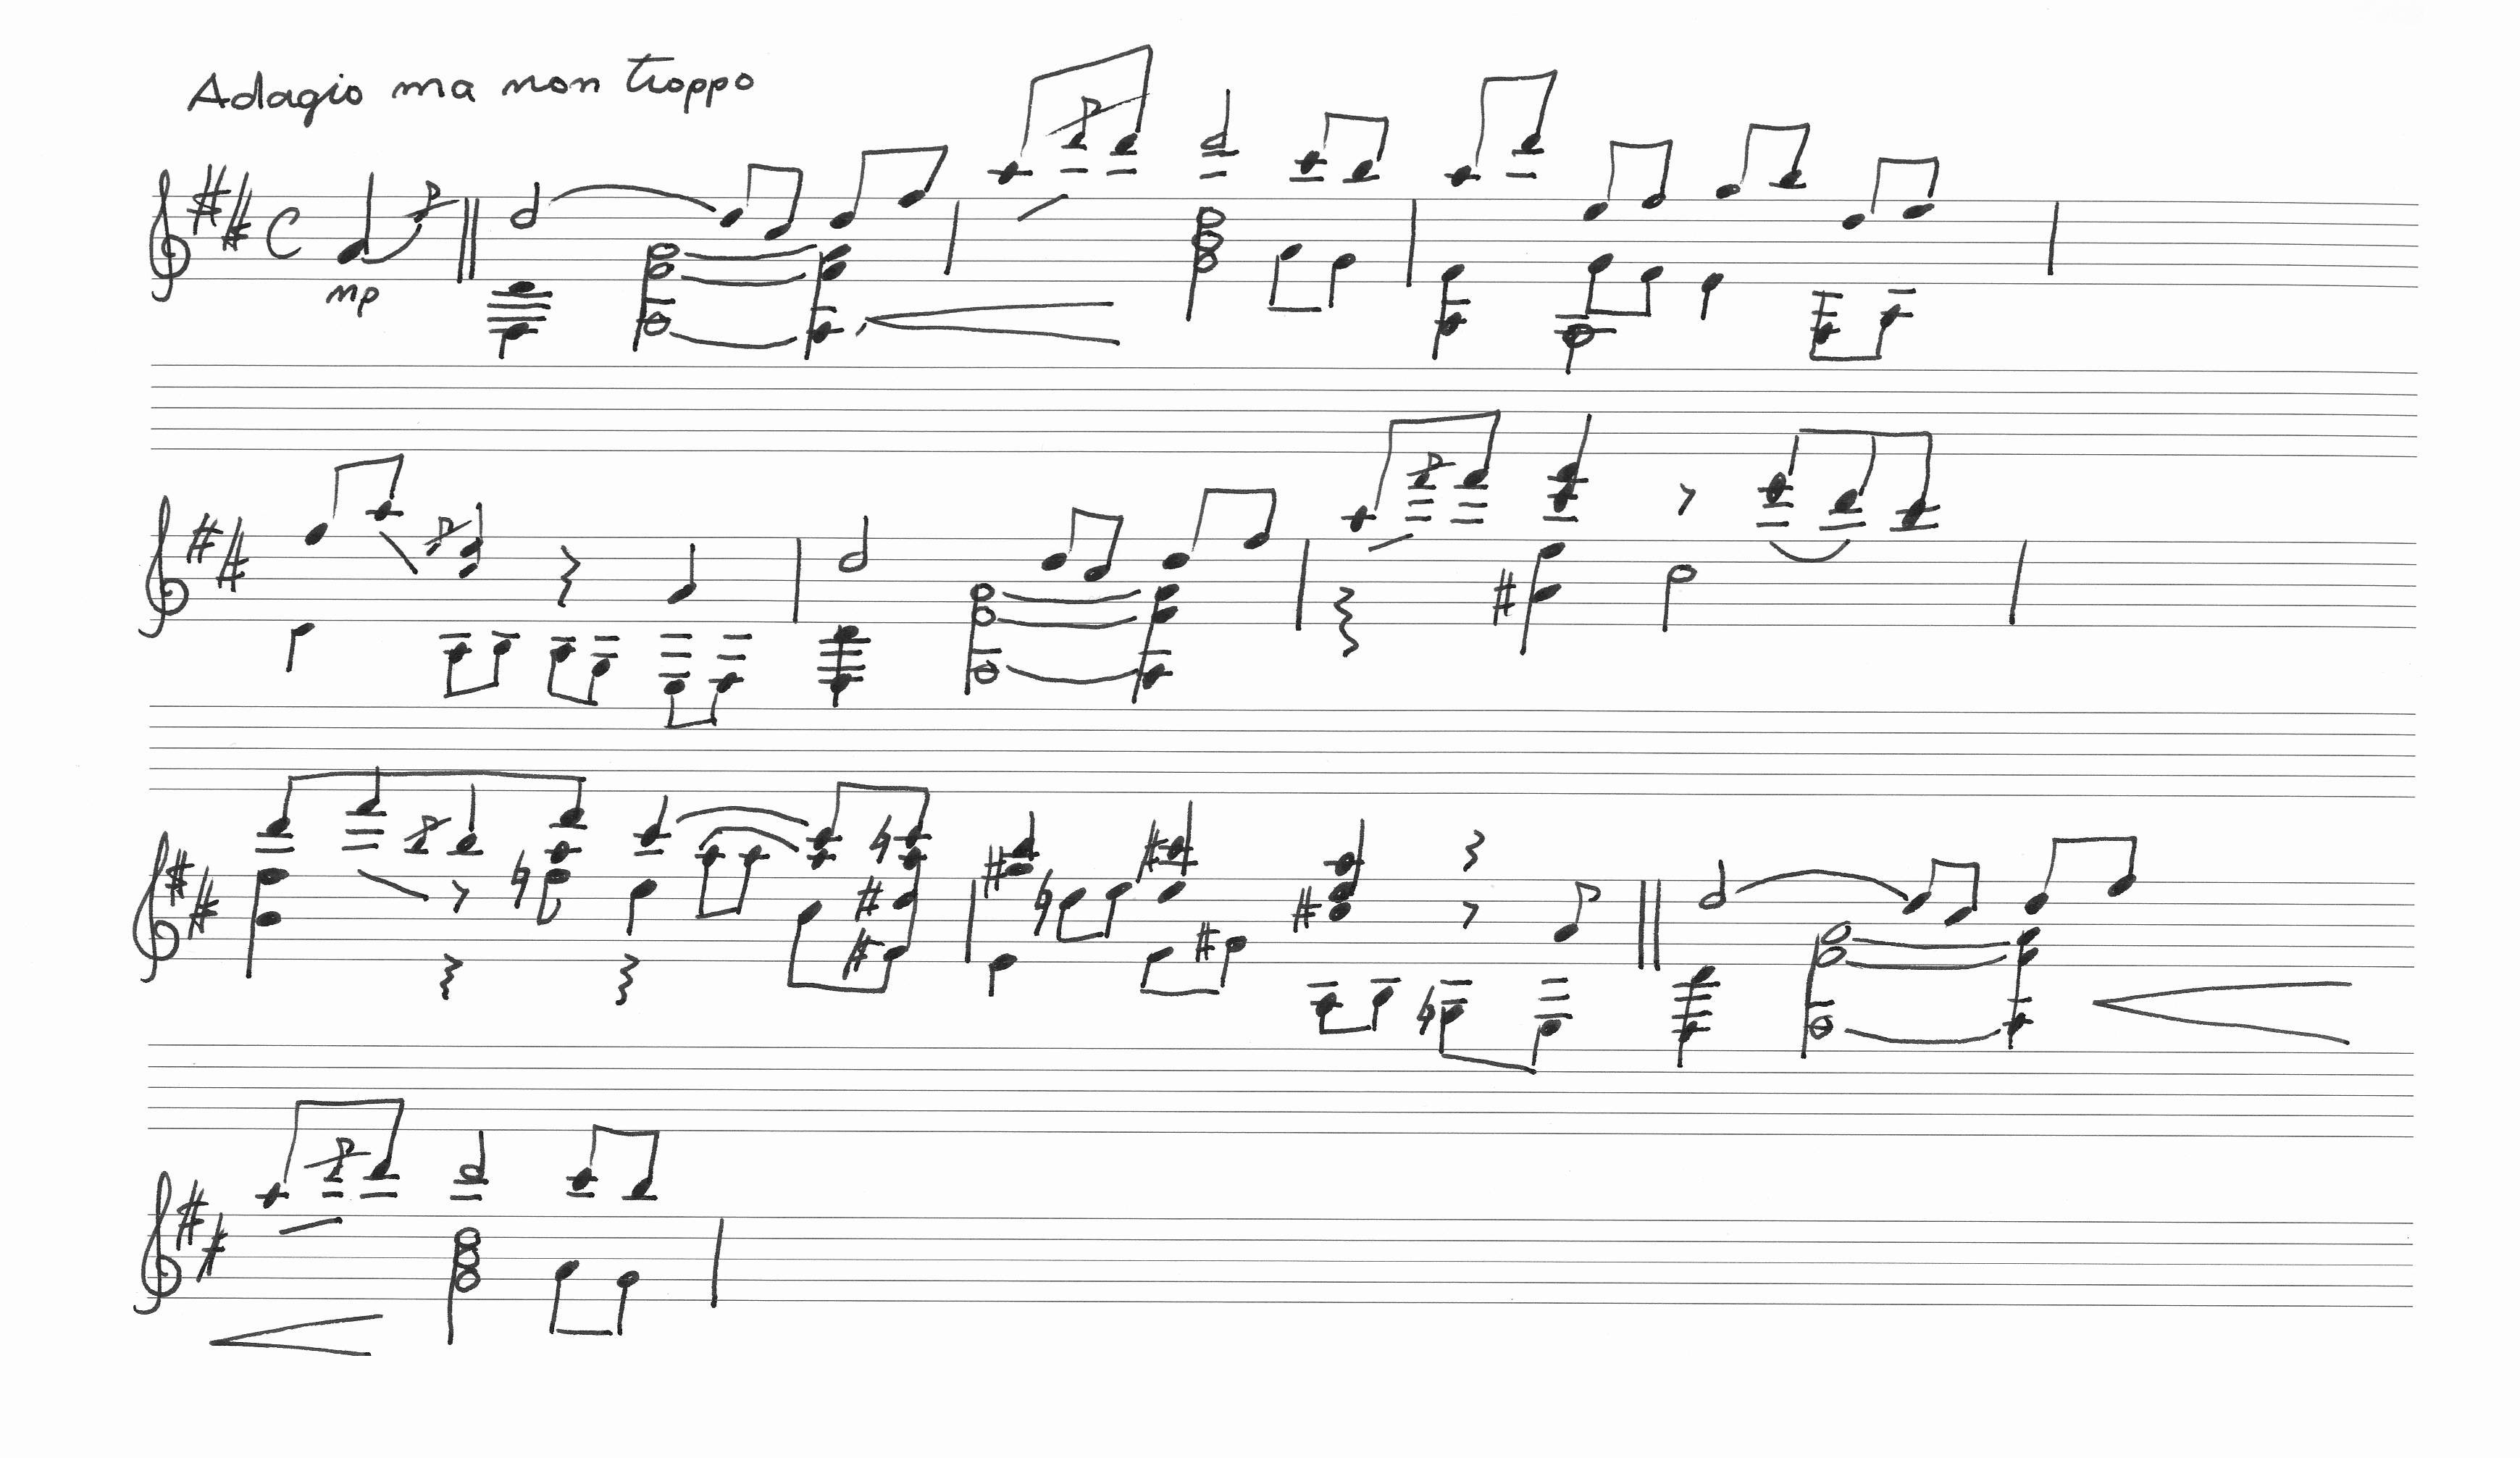 Adagio ma non troppo
C
mp